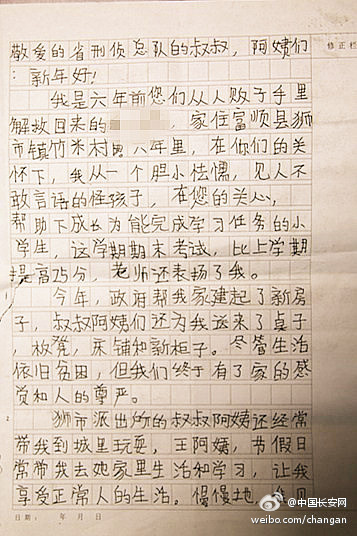 修正栏
敬爱的省刑侦总队的叔叔，阿姨们
：新年好！
我是六年前您们从人贩子手里
解救回来的 ，家住富顺县狮
市镇竹米村 六年里，在你们的关
怀下，我从一个胆小怯懦，见人不
敢言语的怪孩子，在您的关心，
帮助下成长为能完成学习任务的小
学生，这学期期末考试，比上学期
提高25分，老师还表扬了我。
今年，政府帮我家建起了新房
子，叔叔阿姨们还为我运来了桌子
，板凳，床铺和新柜子。尽管生活
依旧贫困，但我们终于有了家的感
觉和人的尊严。
狮市派出所的叔叔阿姨还经常
带我到城里玩耍，王阿姨，节假日
常带我去她家里生活和学习，让我
享受正常人的生活。慢慢地，
日期： 年 月 日
@中国长安网
weibo.com/changan